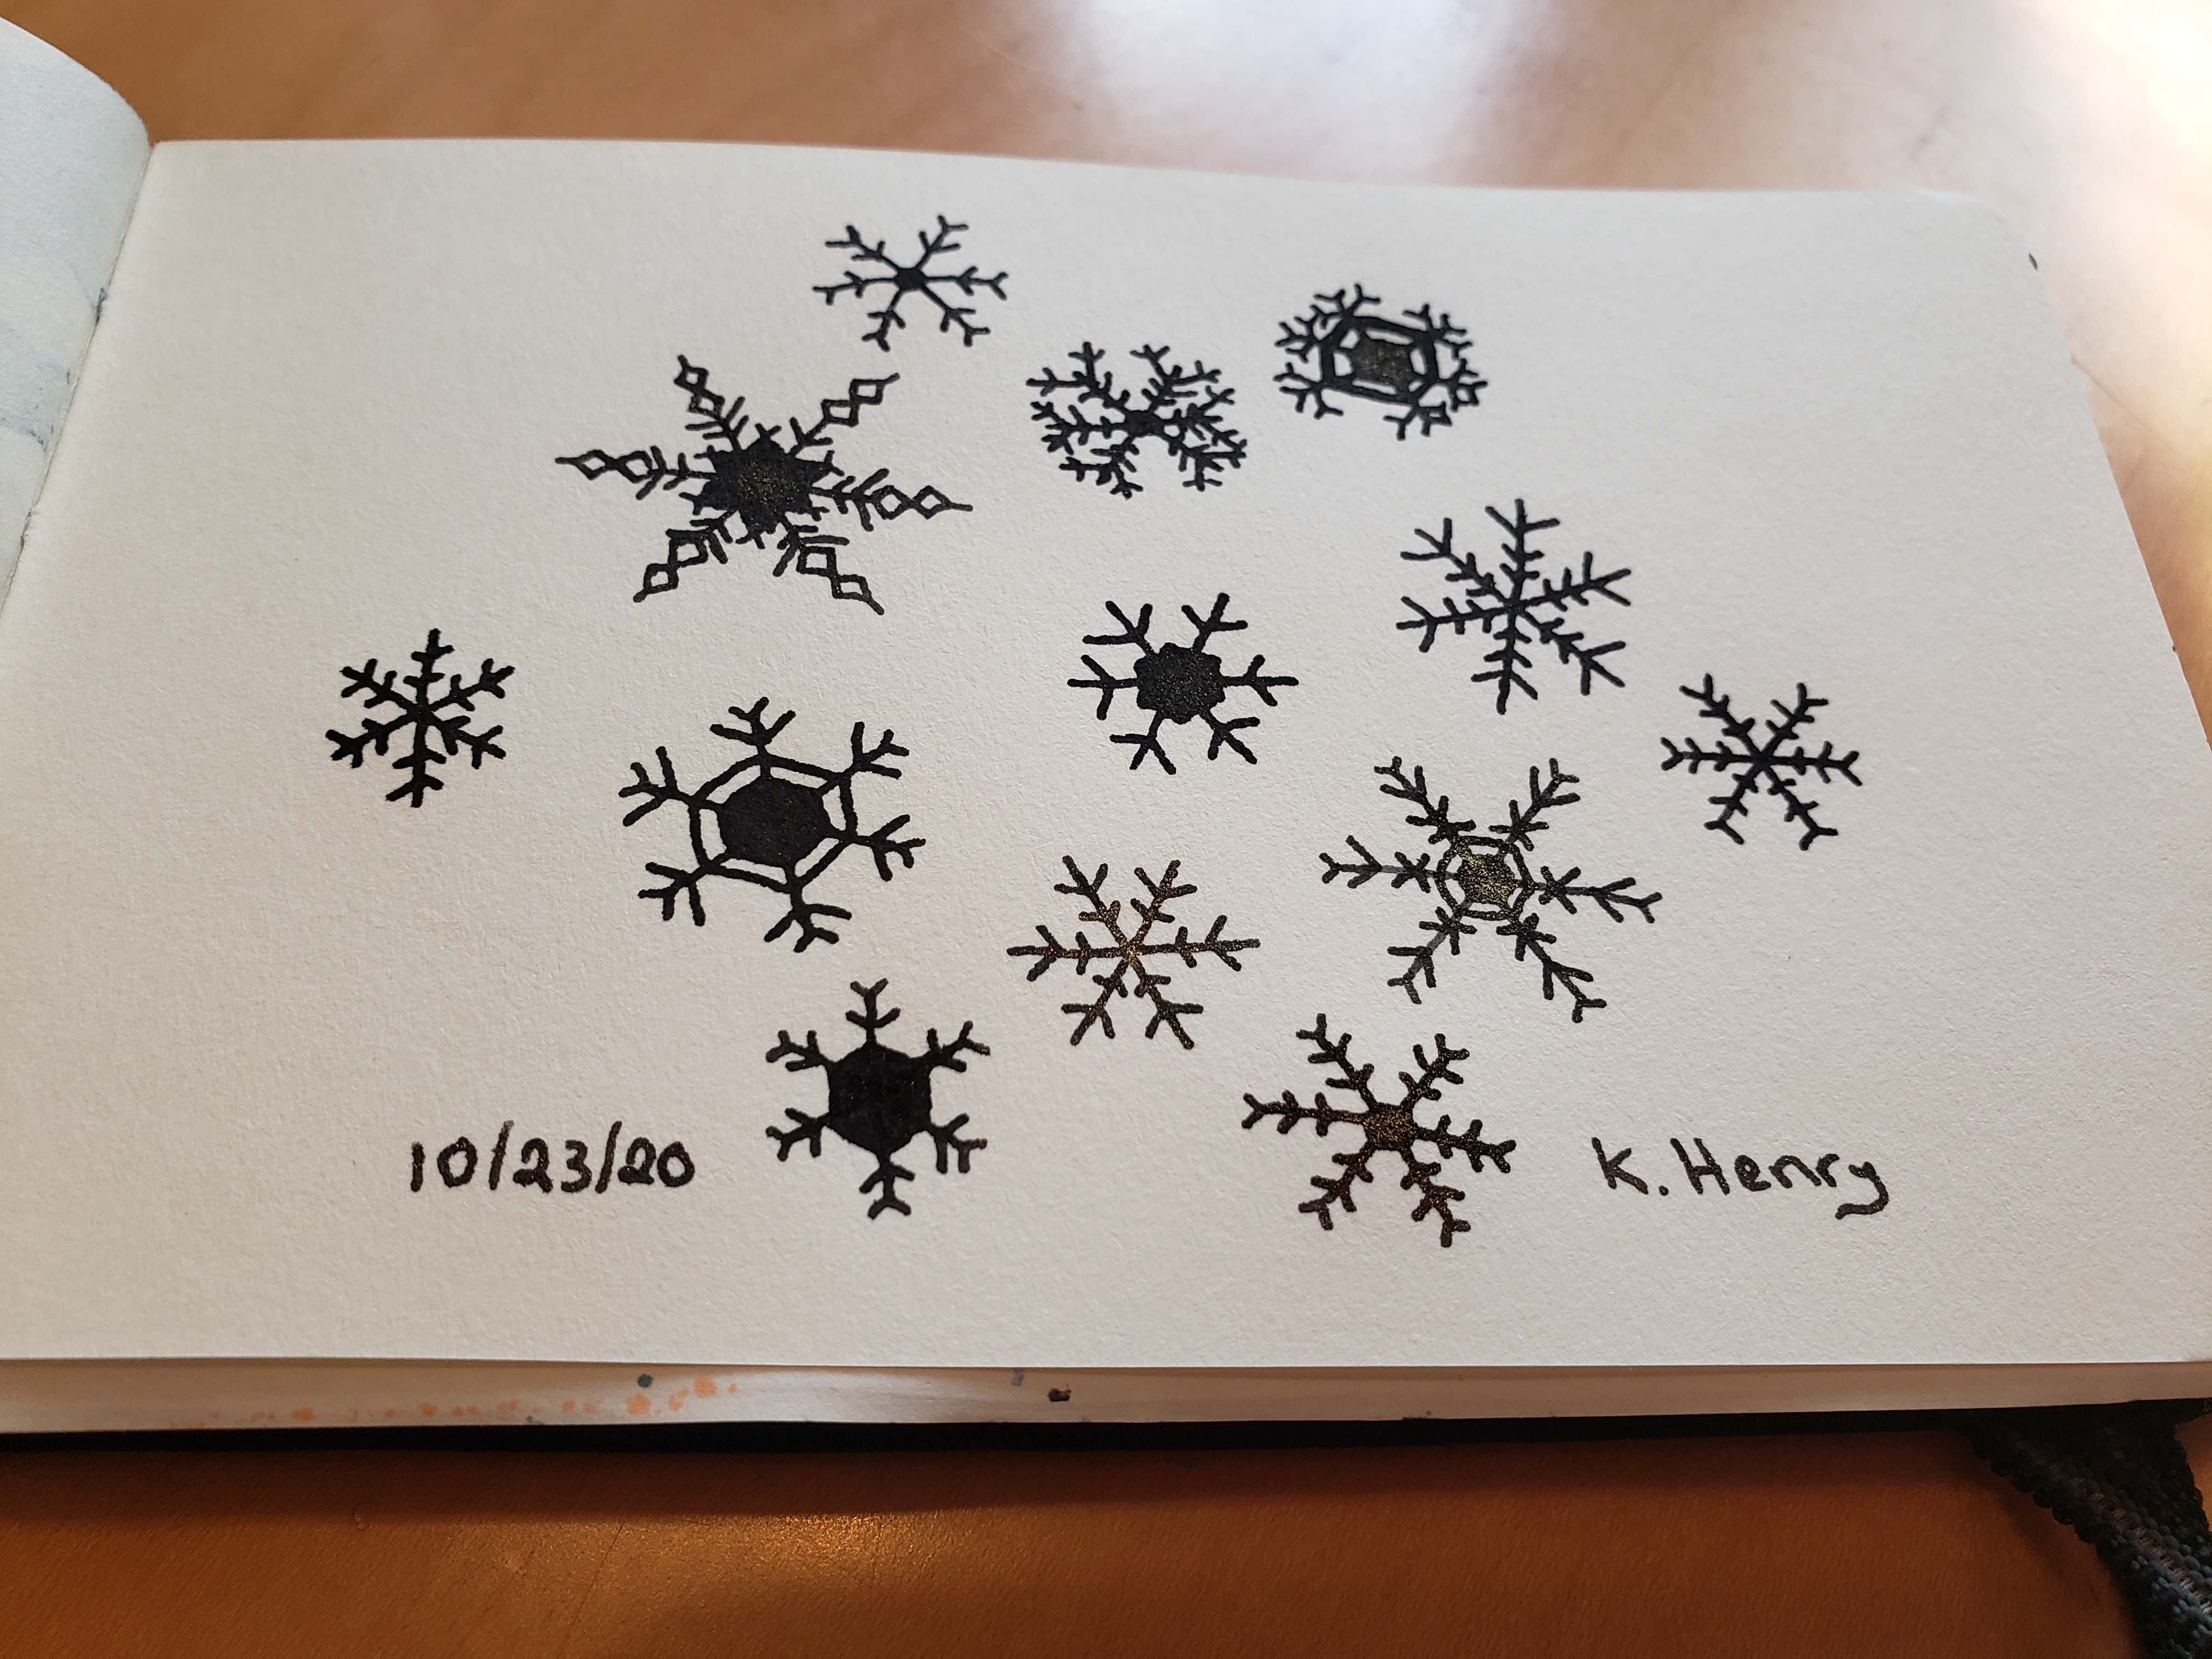 10/23/20
K. Henry